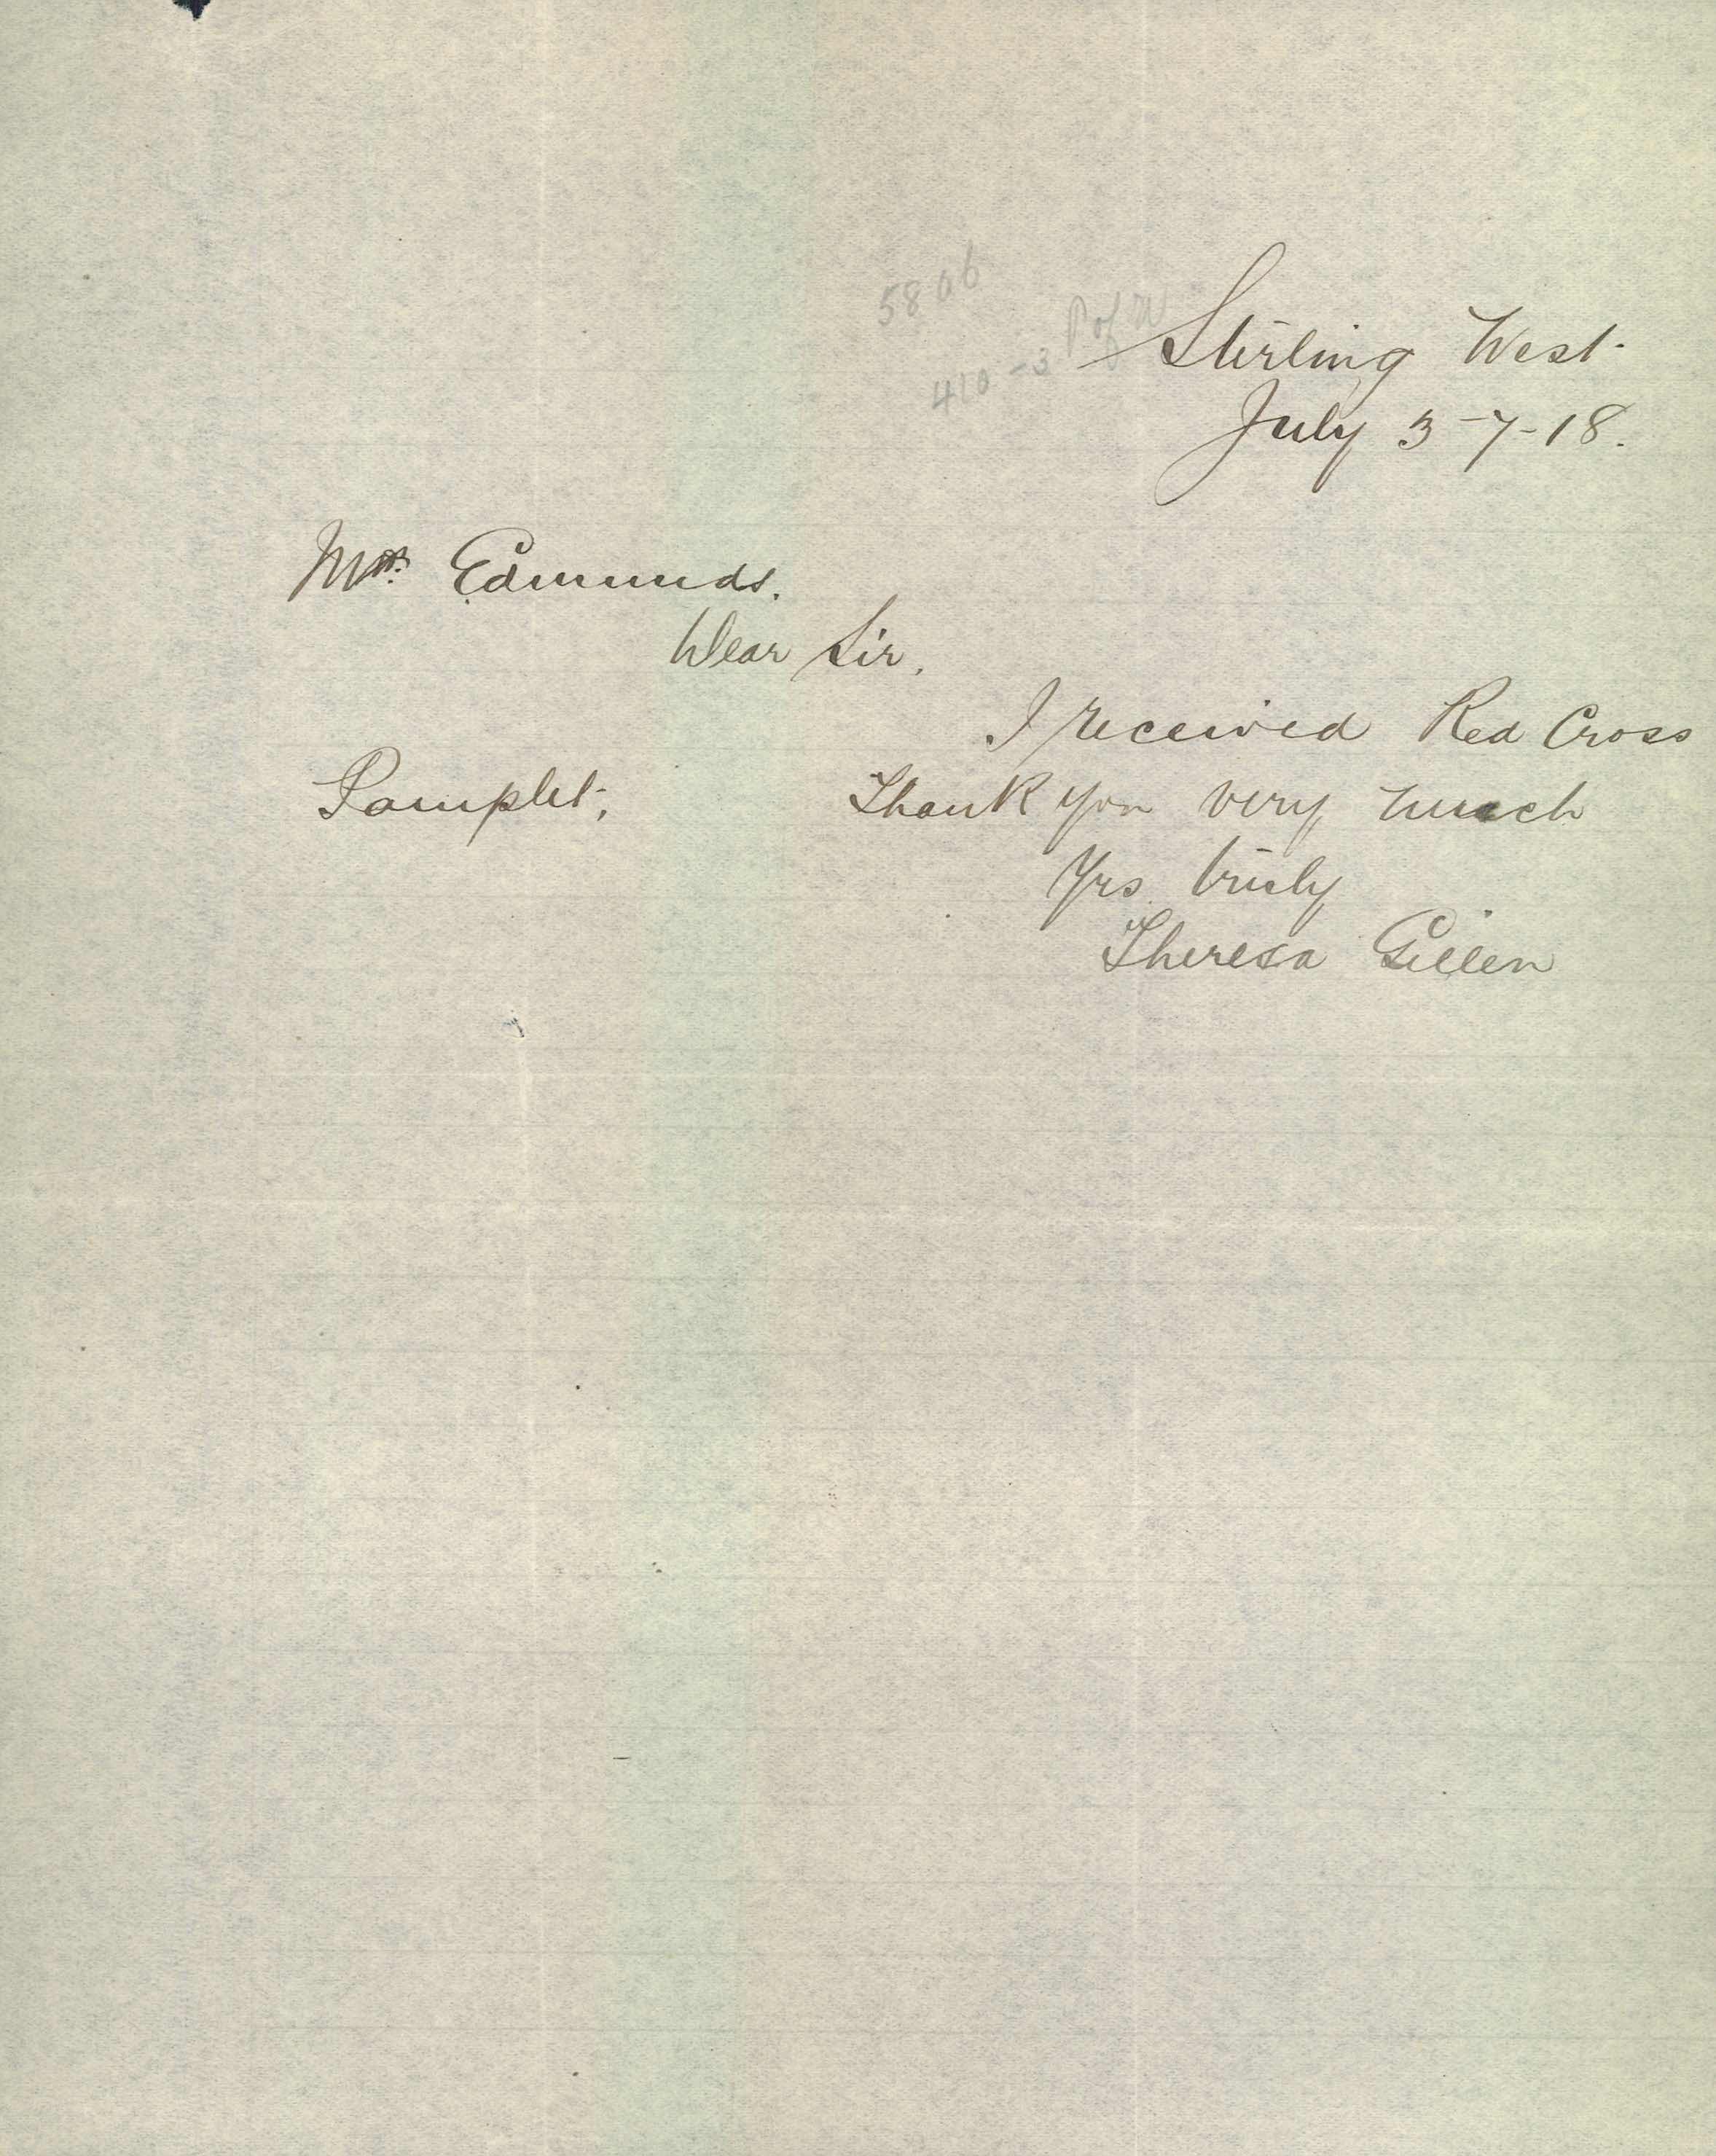 58 a b
410-3 P of W
Stirling West.
July 3-7-18.
Mr. Edmunds.
Dear Sir.
I received Red Cross
Pamplet, Thank you very much
Yrs truly
Theresa Gillen